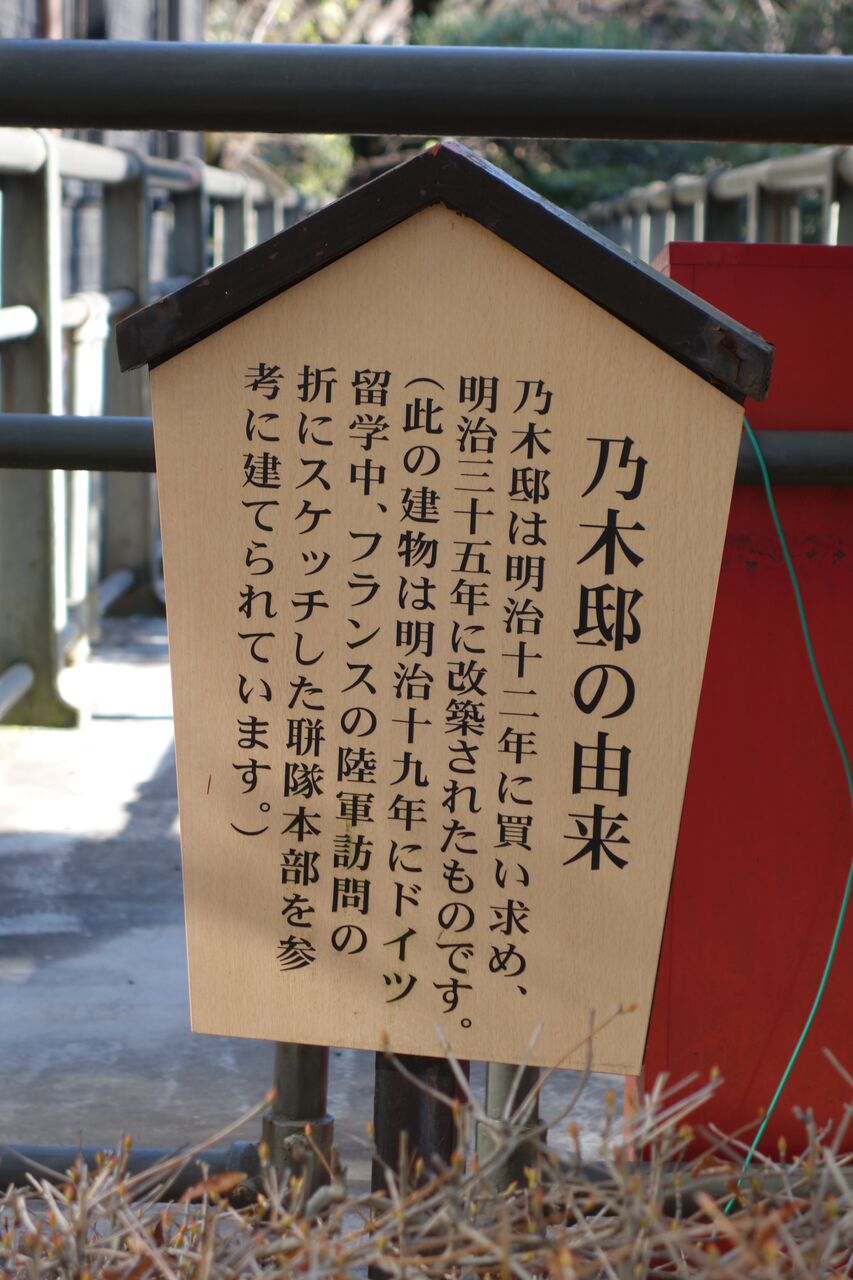 乃木邸の由来
乃木邸は明治十二年に買い求め、
明治三十五年に改築されたものです。
(此の建物は明治十九年にドイツ
留学中、フランスの陸軍訪問の
折にスケッチした聨隊本部を参
考に建てられています。)